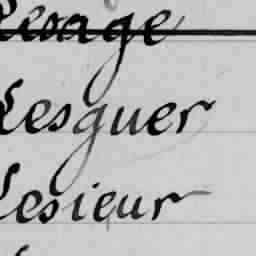 Lesage
Lesguer
Lesieur